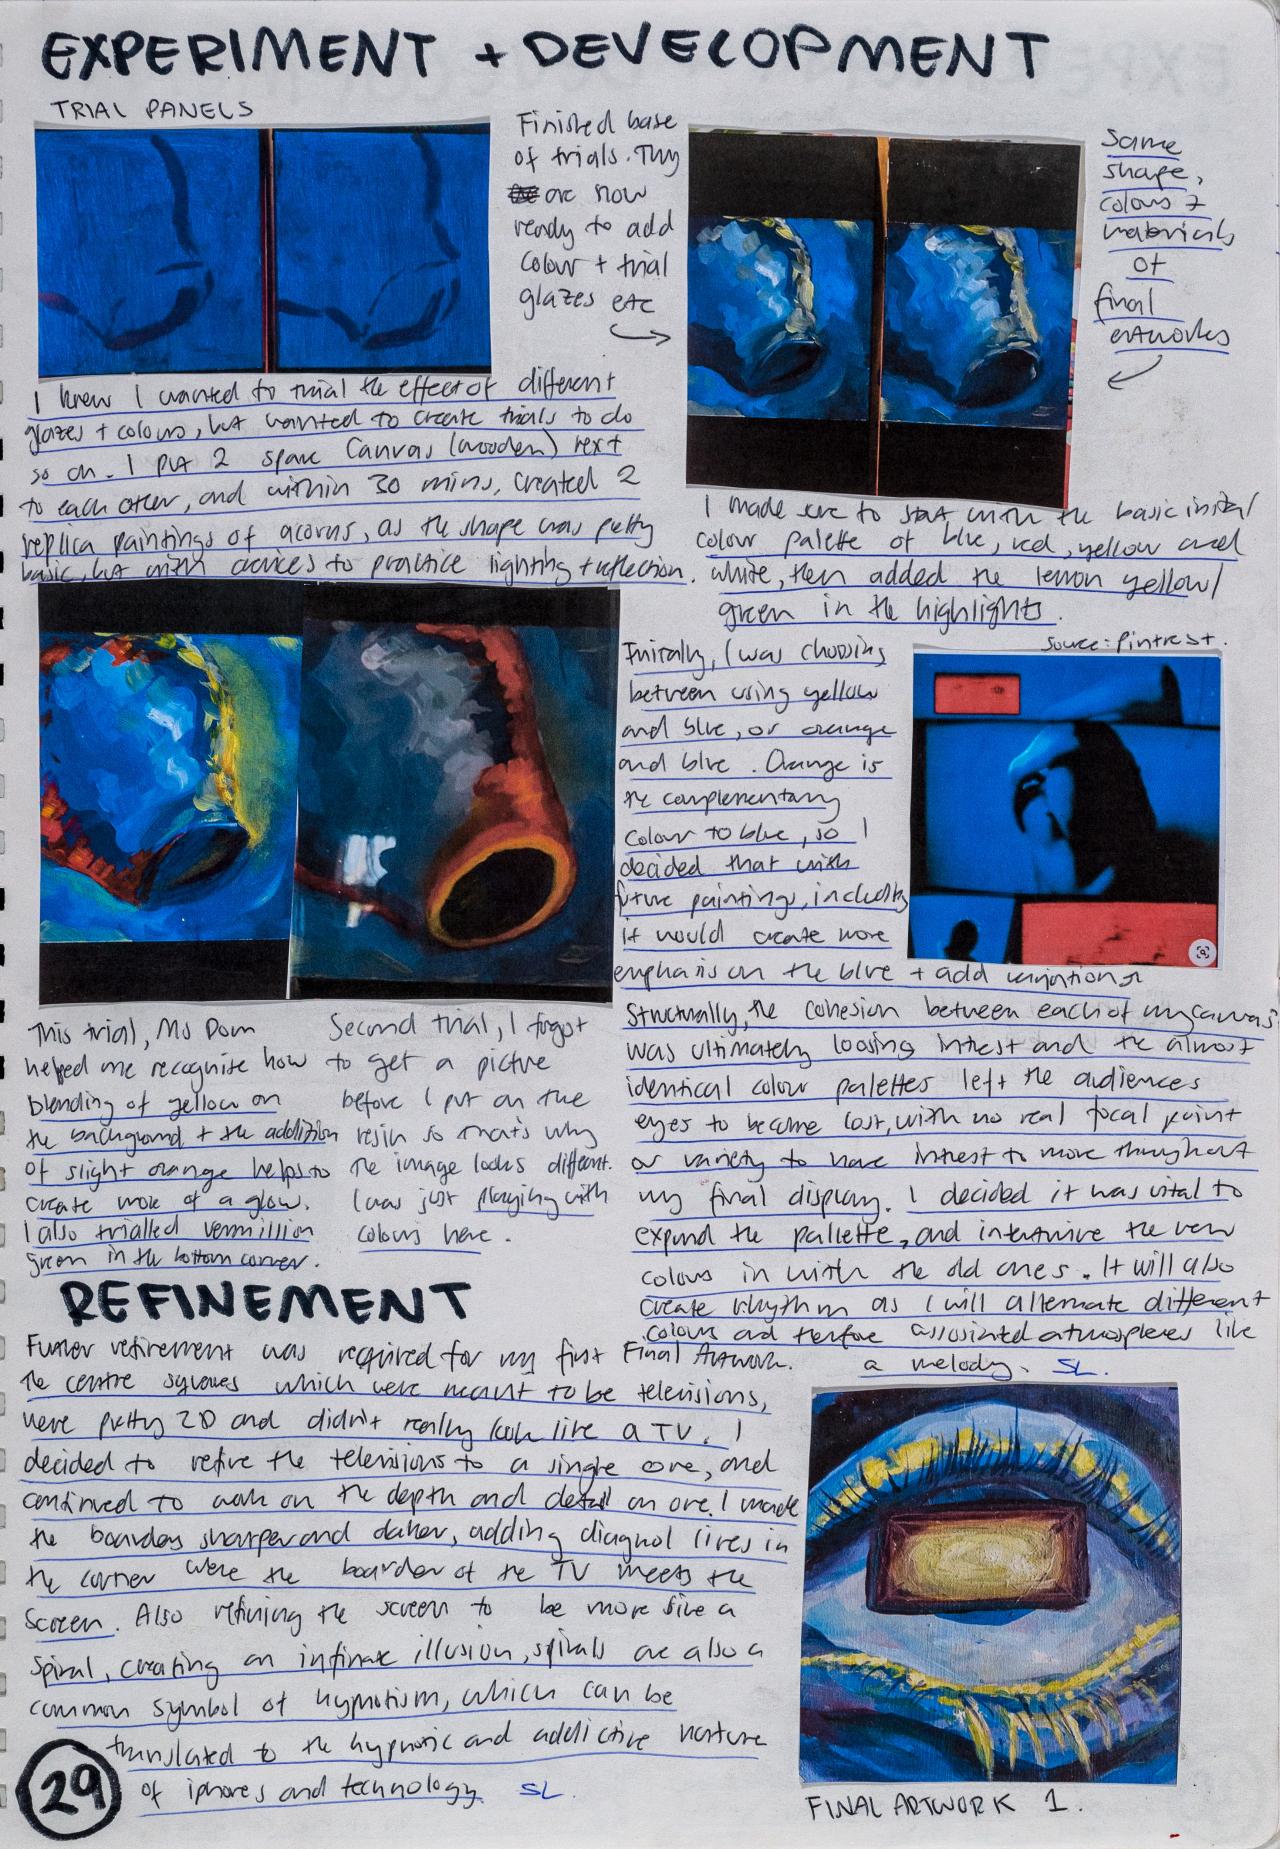 EXPERIMENT + DEVELOPMENT
TRIAL PANELS
Finished base
of trials. They
are now
ready to add
colour + trial
glazes etc
Same
shape,
colours +
materials
of
final
artworks
I knew I wanted to trial the effect of different
glazes + colours, but wanted to create trials to do
so on. I put 2 spare Canvas (wooden) next
to each other, and within 30 mins, created 2
replica paintings of acorns, as the shape was pretty
basic, but with devices to practice lighting + reflection.
I made sure to start with the basic initial
colour palette of blue, red, yellow and
white, then added the lemon yellow/
green in the highlights.
Source: Pintrest.
Initally, I was choosing
between using yellow
and blue, or orange
and blue. Orange is
the complementary
colour to blue, so I
decided that with
future paintings, including
it would create more
emphasis on the blue + add variation
Structurally, the cohesion between each of my canvas
was ultimately loosing intrest and the almost
identical colour palettes left the audiences
eyes to become lost, with no real focal point
or variety to have intrest to move throughout
my final display. I decided it was vital to
expand the pallette, and intertwine the new
colours in with the old ones. It will also
create rhythm as I will alternate different
colours and therfore associated atmospheres like
a melody. SL.
This trial, Ms Dom
helped me recognise how
blending of yellow on
the background + the addition
of slight orange helps to
create more of a glow.
I also trialled vermillion
green in the bottom corner.
Second trial, I forgot
to get a picture
before I put on the
resin so that's why
the image looks different.
I was just playing with
colours here.
REFINEMENT
Further refirement was required for my first Final Artwork.
The centre squares which were meant to be televisions,
were pretty 2D and didn't really look like a TV. I
decided to refine the televisions to a single one, and
continued to work on the depth and detail on one. I made
the boarders sharper and darker, adding diagnol lines in
the corner were the boarder of the TV meets the
screen. Also refining the screen to be more like a
spiral, creating an infinate illusion, spirals are also a
common symbol of hypnotism, which can be
translated to the hypnotic and addictive nature
of iphones and technology. SL.
29
FINAL ARTWORK 1.